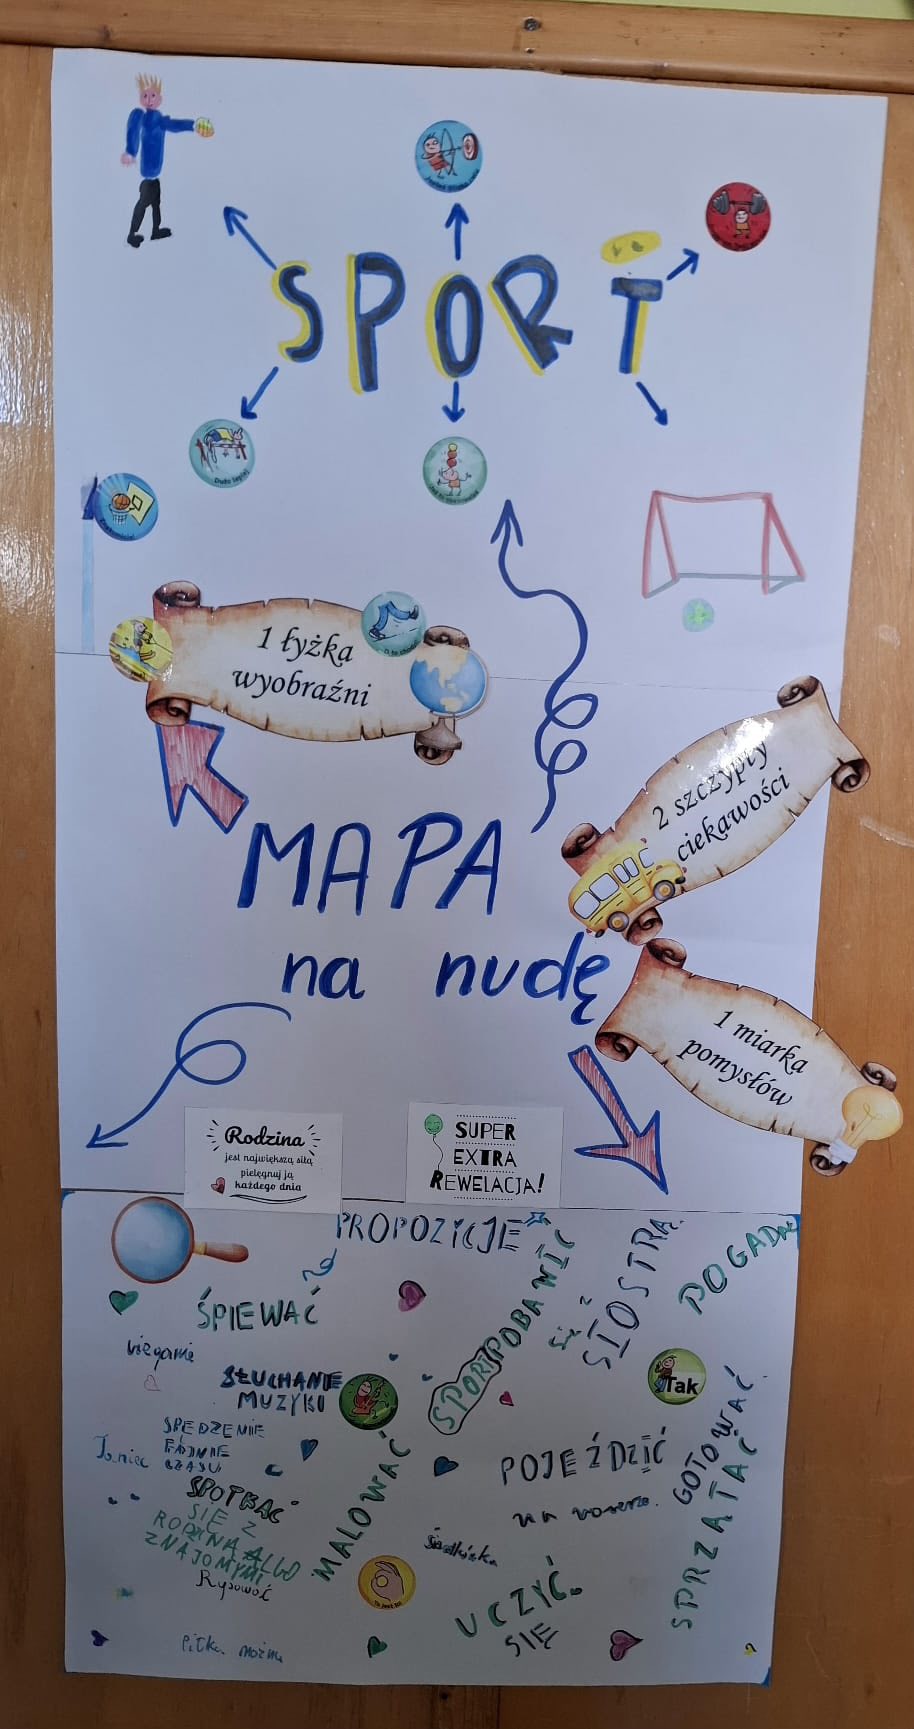 SPORT
Dużo lepiej
1 łyżka
wyobraźni
2 szczypty
ciekawości
MAPA
na nudę
1 miarka
pomysłów
Rodzina
jest największą siłą
pielęgnuj ją
każdego dnia
SUPER
EXTRA
REWELACJA!
PROPOZYCJE
ŚPIEWAĆ
bieganie
SŁUCHANIE
MUZYKI
SPĘDZENIE
FAJNIE
CZASU
Taniec
SPOTKAĆ
SIĘ Z
RODZINĄ ALBO
ZNAJOMYMI
Rysować
Piłka nożna
MALOWAĆ
SPORT
POBAWIĆ
się z
SIOSTRĄ
POGADAĆ
Tak
POJEŹDZIĆ
na rowerze.
siatkówka
UCZYĆ
SIĘ
GOTOWAĆ
SPRZĄTAĆ